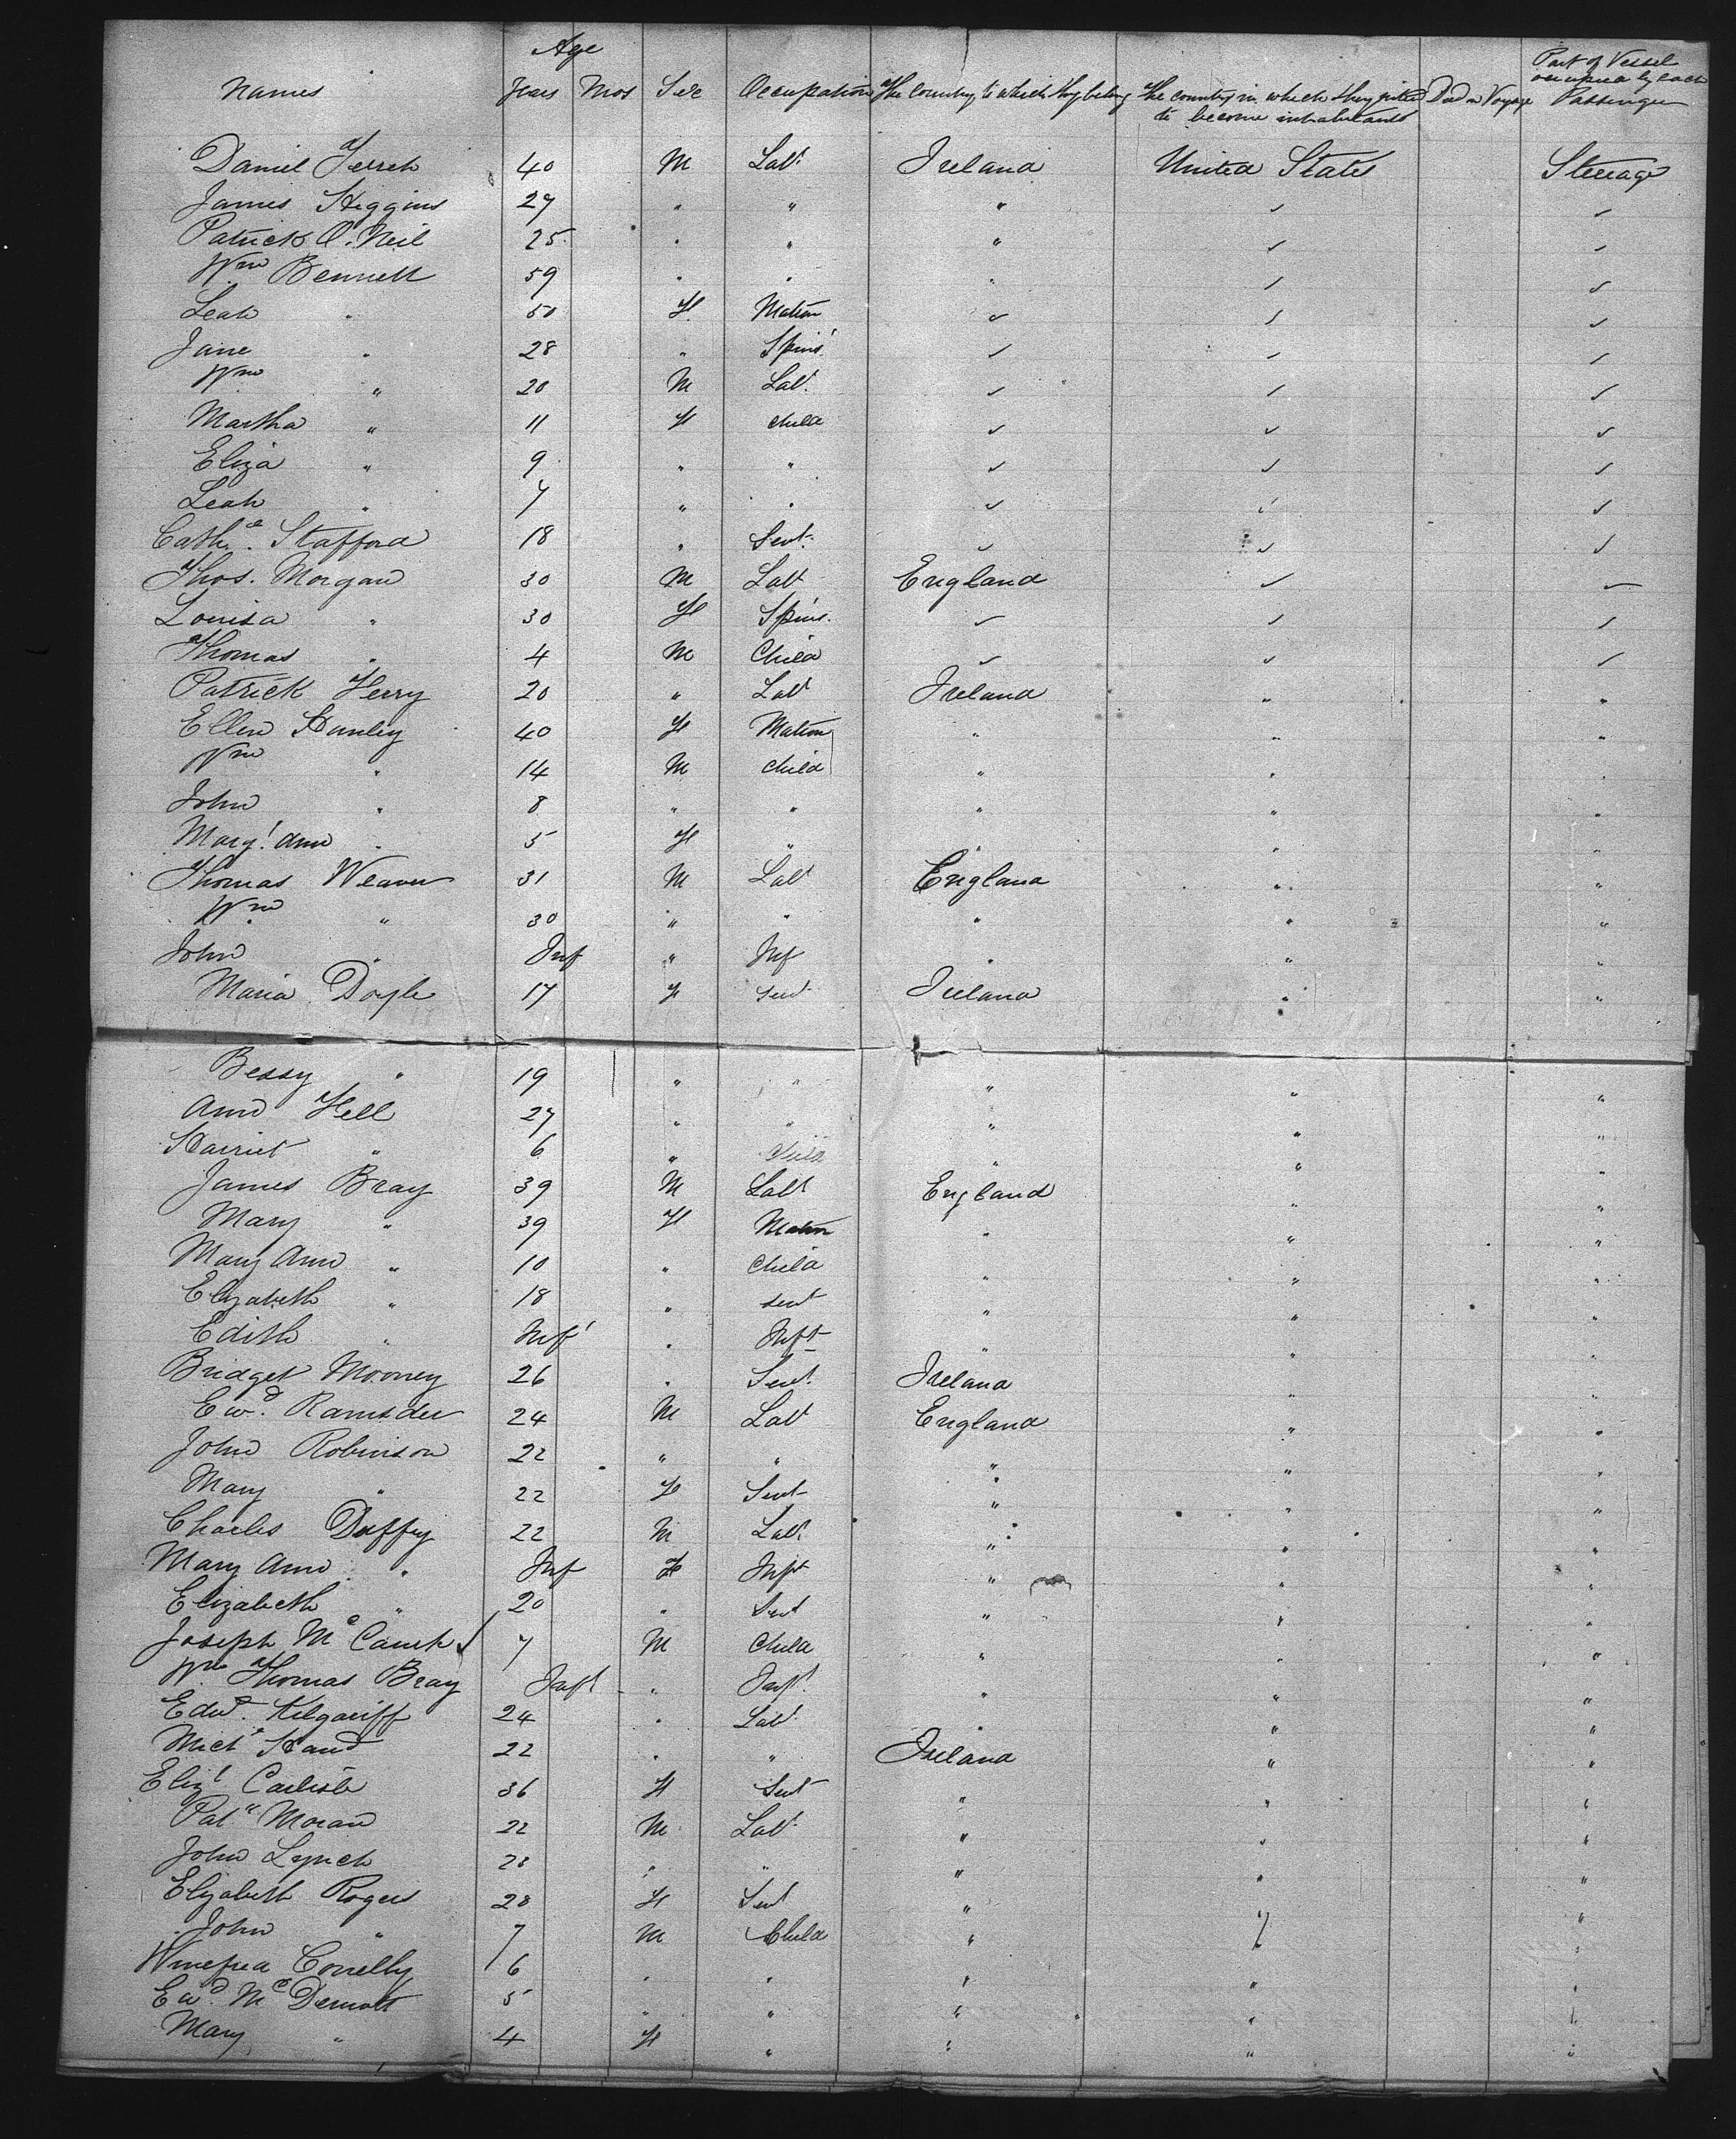 Age
Names Years Mos Sex Occupation The Country to which they belong The country in which they intend to become inhabitants Died on Voyage Part of Vessel occupied by each Passenger
Daniel 40 M Labr Ireland United States Steerage
James Higgins 27 " " " ✓ ✓
Patrick O. Neil 25 " " " ✓ ✓
Wm Bennett 59 " " " ✓ ✓
Leah " 50 F Matron ✓ ✓ ✓
Jane " 28 " Spins ✓ ✓ ✓
Wm " 20 M Labr ✓ ✓ ✓
Martha " 11 F Child ✓ ✓ ✓
Eliza " 9 " " ✓ ✓ ✓
Leah " 7 " " ✓ ✓ ✓
Cathe. Stafford 18 " Servt. ✓ ✓ ✓
Thos. Morgan 30 M Labr England ✓ ✓
Louisa " 30 F Spins. ✓ ✓ ✓
Thomas " 4 M Child ✓ ✓ ✓
Patrick 20 " Labr Ireland " "
Ellen Hanley 40 F Matron " " "
Wm " 14 M Child " " "
John " 8 " " " " "
Margt Ann " 5 F " " " "
Thomas Weaver 31 M Labr England " "
Wm " 30 " " " " "
John " Inf " Inf " " "
Maria Doyle 17 F Servt Ireland " "
Bessy " 19 " " " " "
Ann 27 " " " " "
Harriet " 6 " Child " " "
James Bray 39 M Labr England " "
Mary " 39 F Matron " " "
Mary Ann " 10 " Child " " "
Elizabeth " 18 " Servt " " "
Edith " Inft " Inft " " "
Bridget Mooney 26 " Servt. Ireland " "
Ewd. Ramsden 24 M Labr England " "
John Robinson 22 " " " " "
Mary " 22 F Servt " " "
Charles Duffy 22 M Labr " " "
Mary Ann " Inf F Inft " " "
Elizabeth " 20 " Servt " " "
Joseph Mc 7 M Child " " "
Wm Thomas Bray Inft " Inft. " " "
Edwd. Kilgariff 24 " Labr " " "
Michl Hand 22 " " Ireland " "
Elizt Carlisle 36 F Servt " " "
Patk Moran 22 M Labr " " "
John Lynch " " " " "
Elizabeth Rogers 28 F Servt " " "
John " 7 M Child " " "
Winefred Conelly 6 " " " " "
Ewd. Mc Dermott 5 " " " " "
Mary " 4 F " " " "